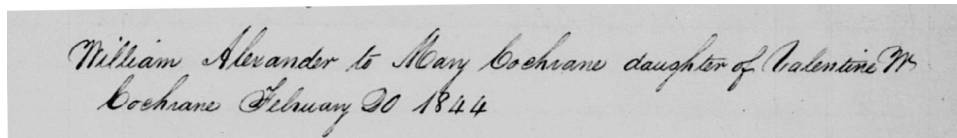 William Alexander to Mary Cochrane daughter of Valentine W
Cochrane February 20 1844